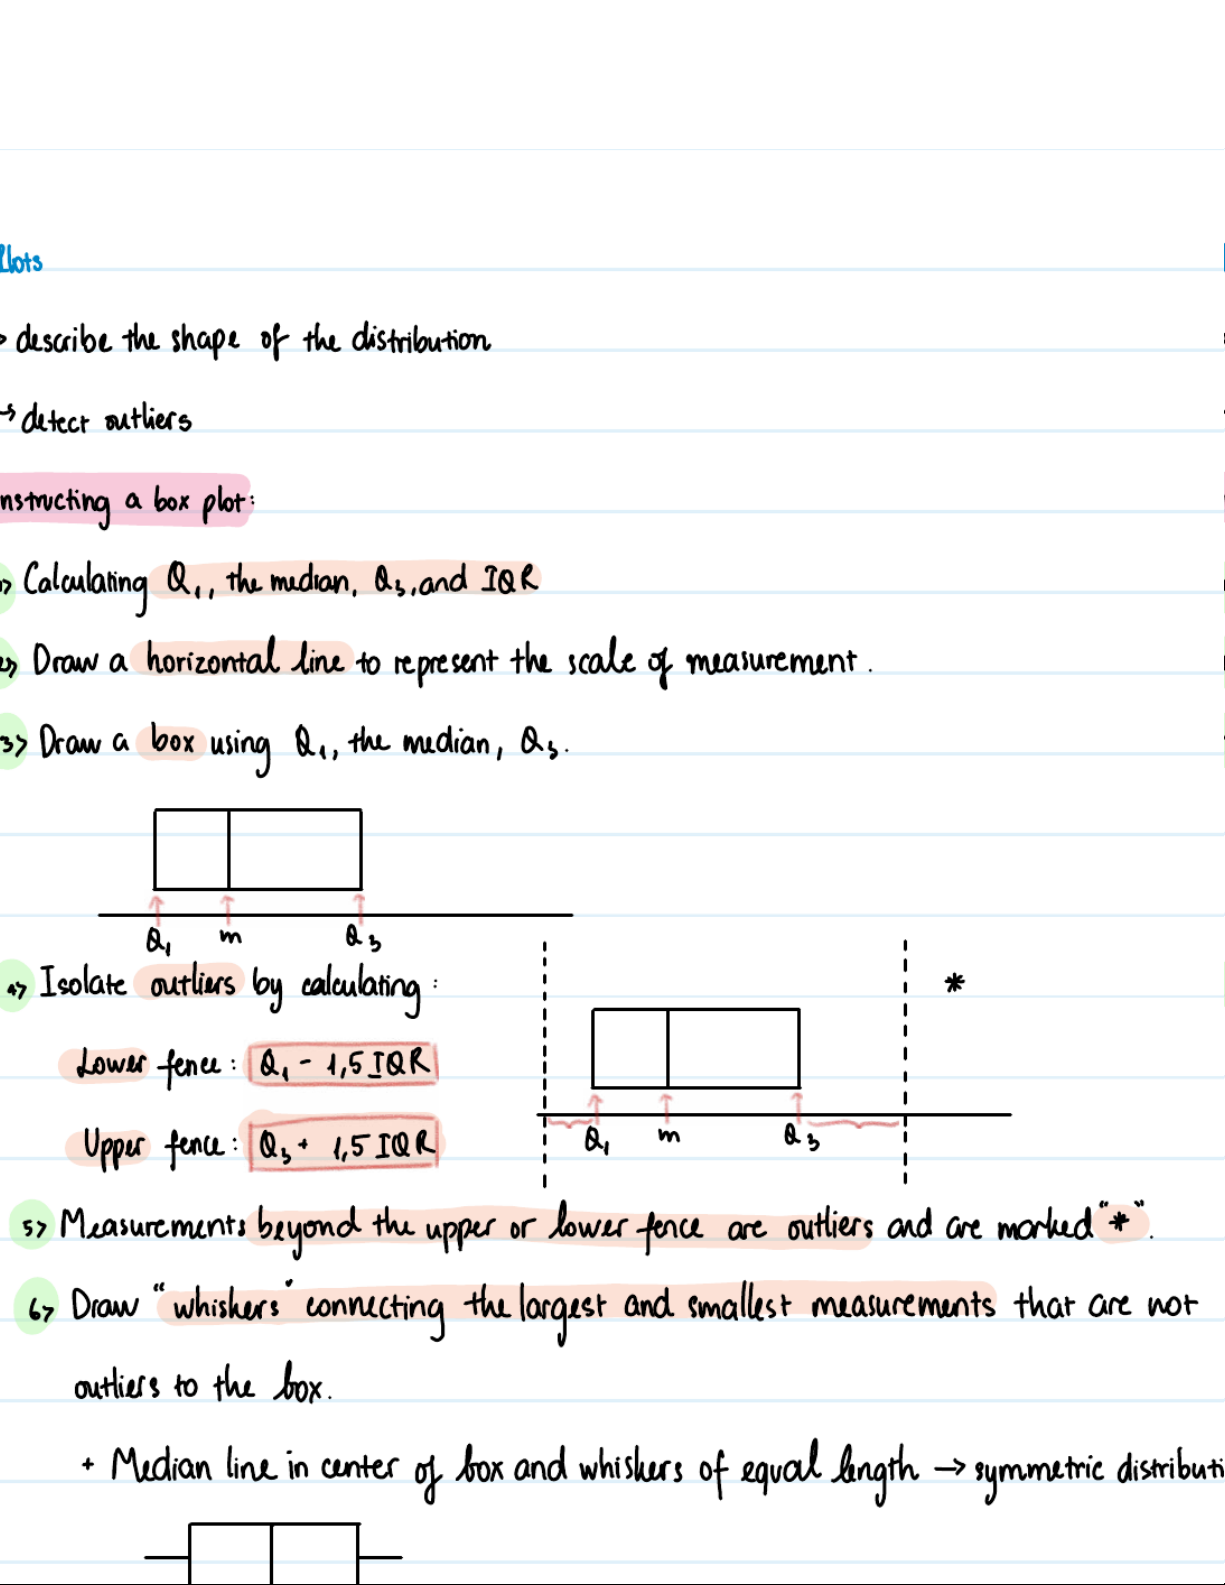 Plots
> describe the shape of the distribution
→ detect outliers
nstructing a box plot:
1> Calculating Q₁, the median, Q₃, and IQR
2> Draw a horizontal line to represent the scale of measurement.
3> Draw a box using Q₁, the median, Q₃.
Q₁ m Q₃
4> Isolate outliers by calculating:
*
Lower fence: Q₁ - 1,5 IQR
Q₁ m Q₃
Upper fence: Q₃ + 1,5 IQR
5> Measurements beyond the upper or lower fence are outliers and are marked "*".
6> Draw "whiskers" connecting the largest and smallest measurements that are not
outliers to the box.
+ Median line in center of box and whiskers of equal length → symmetric distributi